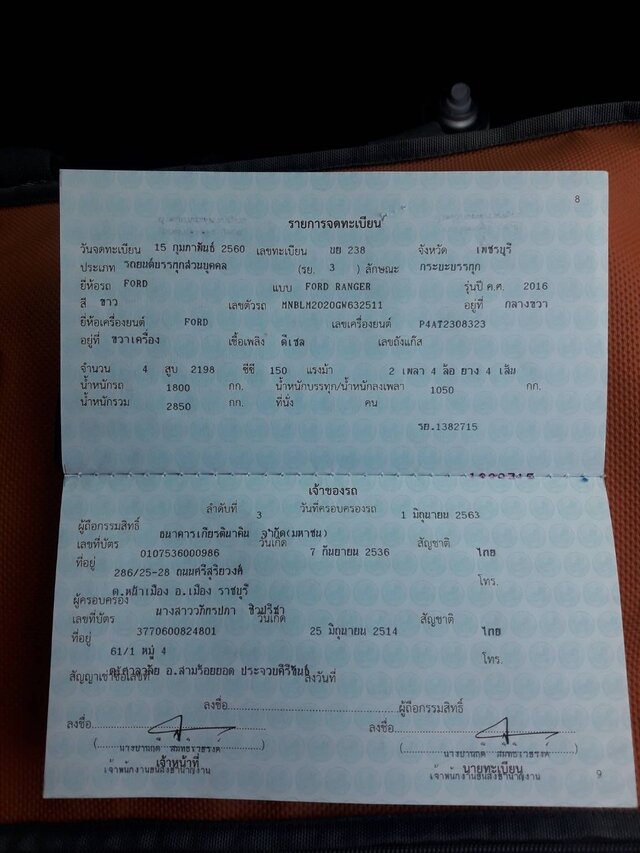 8
รายการจดทะเบียน
วันจดทะเบียน 15 กุมภาพันธ์ 2560 เลขทะเบียน บย 238 จังหวัด เพชรบุรี
ประเภท รถยนต์บรรทุกส่วนบุคคล (รย. 3 ) ลักษณะ กระบะบรรทุก
ยี่ห้อรถ FORD แบบ FORD RANGER รุ่นปี ค.ศ. 2016
สี ขาว เลขตัวรถ MNBLM2020GW632511 อยู่ที่ กลางขวา
ยี่ห้อเครื่องยนต์ FORD เลขเครื่องยนต์ P4AT2308323
อยู่ที่ ขวาเครื่อง เชื้อเพลิง ดีเซล เลขถังแก๊ส
จำนวน 4 สูบ 2198 ซีซี 150 แรงม้า 2 เพลา 4 ล้อ ยาง 4 เส้น
น้ำหนักรถ 1800 กก. น้ำหนักบรรทุก/น้ำหนักลงเพลา 1050 กก.
น้ำหนักรวม 2850 กก. ที่นั่ง คน
รย.1382715
เจ้าของรถ
ลำดับที่ 3 วันที่ครอบครองรถ 1 มิถุนายน 2563
ผู้ถือกรรมสิทธิ์ ธนาคารเกียรตินาคิน จำกัด(มหาชน)
เลขที่บัตร 0107536000986 วันเกิด 7 กันยายน 2536 สัญชาติ ไทย
ที่อยู่ 286/25-28 ถนนศรีสุริยวงศ์ โทร.
ต.หน้าเมือง อ.เมือง ราชบุรี
ผู้ครอบครอง นางสาววภัทรปภา
เลขที่บัตร 3770600824801 วันเกิด 25 มิถุนายน 2514 สัญชาติ ไทย
ที่อยู่ 61/1 หมู่ 4 โทร.
ต.ศาลาลัย อ.สามร้อยยอด ประจวบคีรีขันธ์
สัญญาเช่าซื้อเลขที่ ลงวันที่
ลงชื่อ ผู้ถือกรรมสิทธิ์
ลงชื่อ ลงชื่อ
เจ้าหน้าที่ นายทะเบียน
เจ้าพนักงานขนส่งชำนาญงาน เจ้าพนักงานขนส่งชำนาญงาน
9